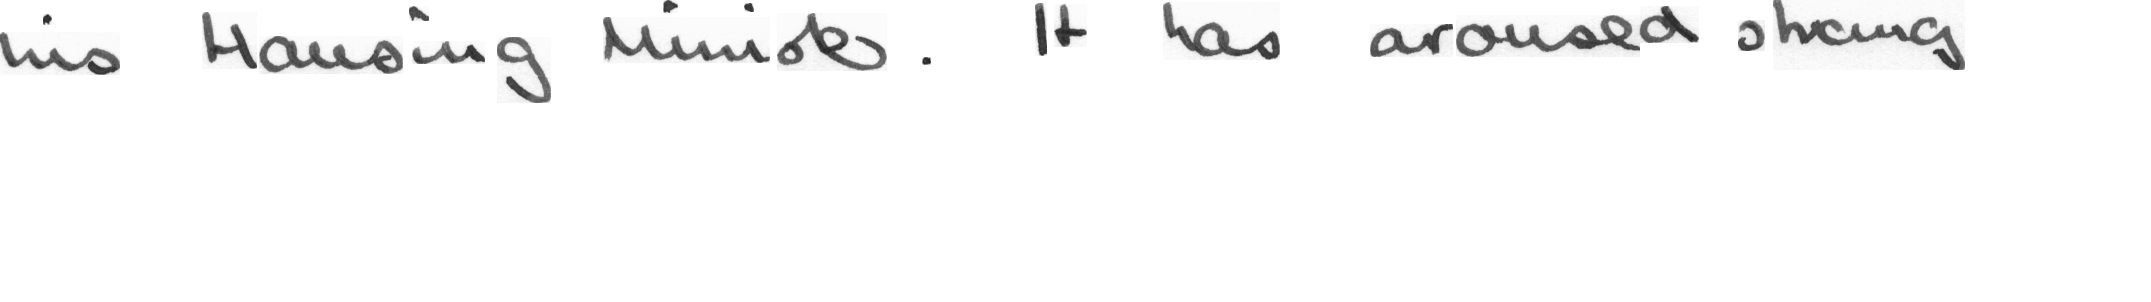 his Housing Minister. It has aroused strong